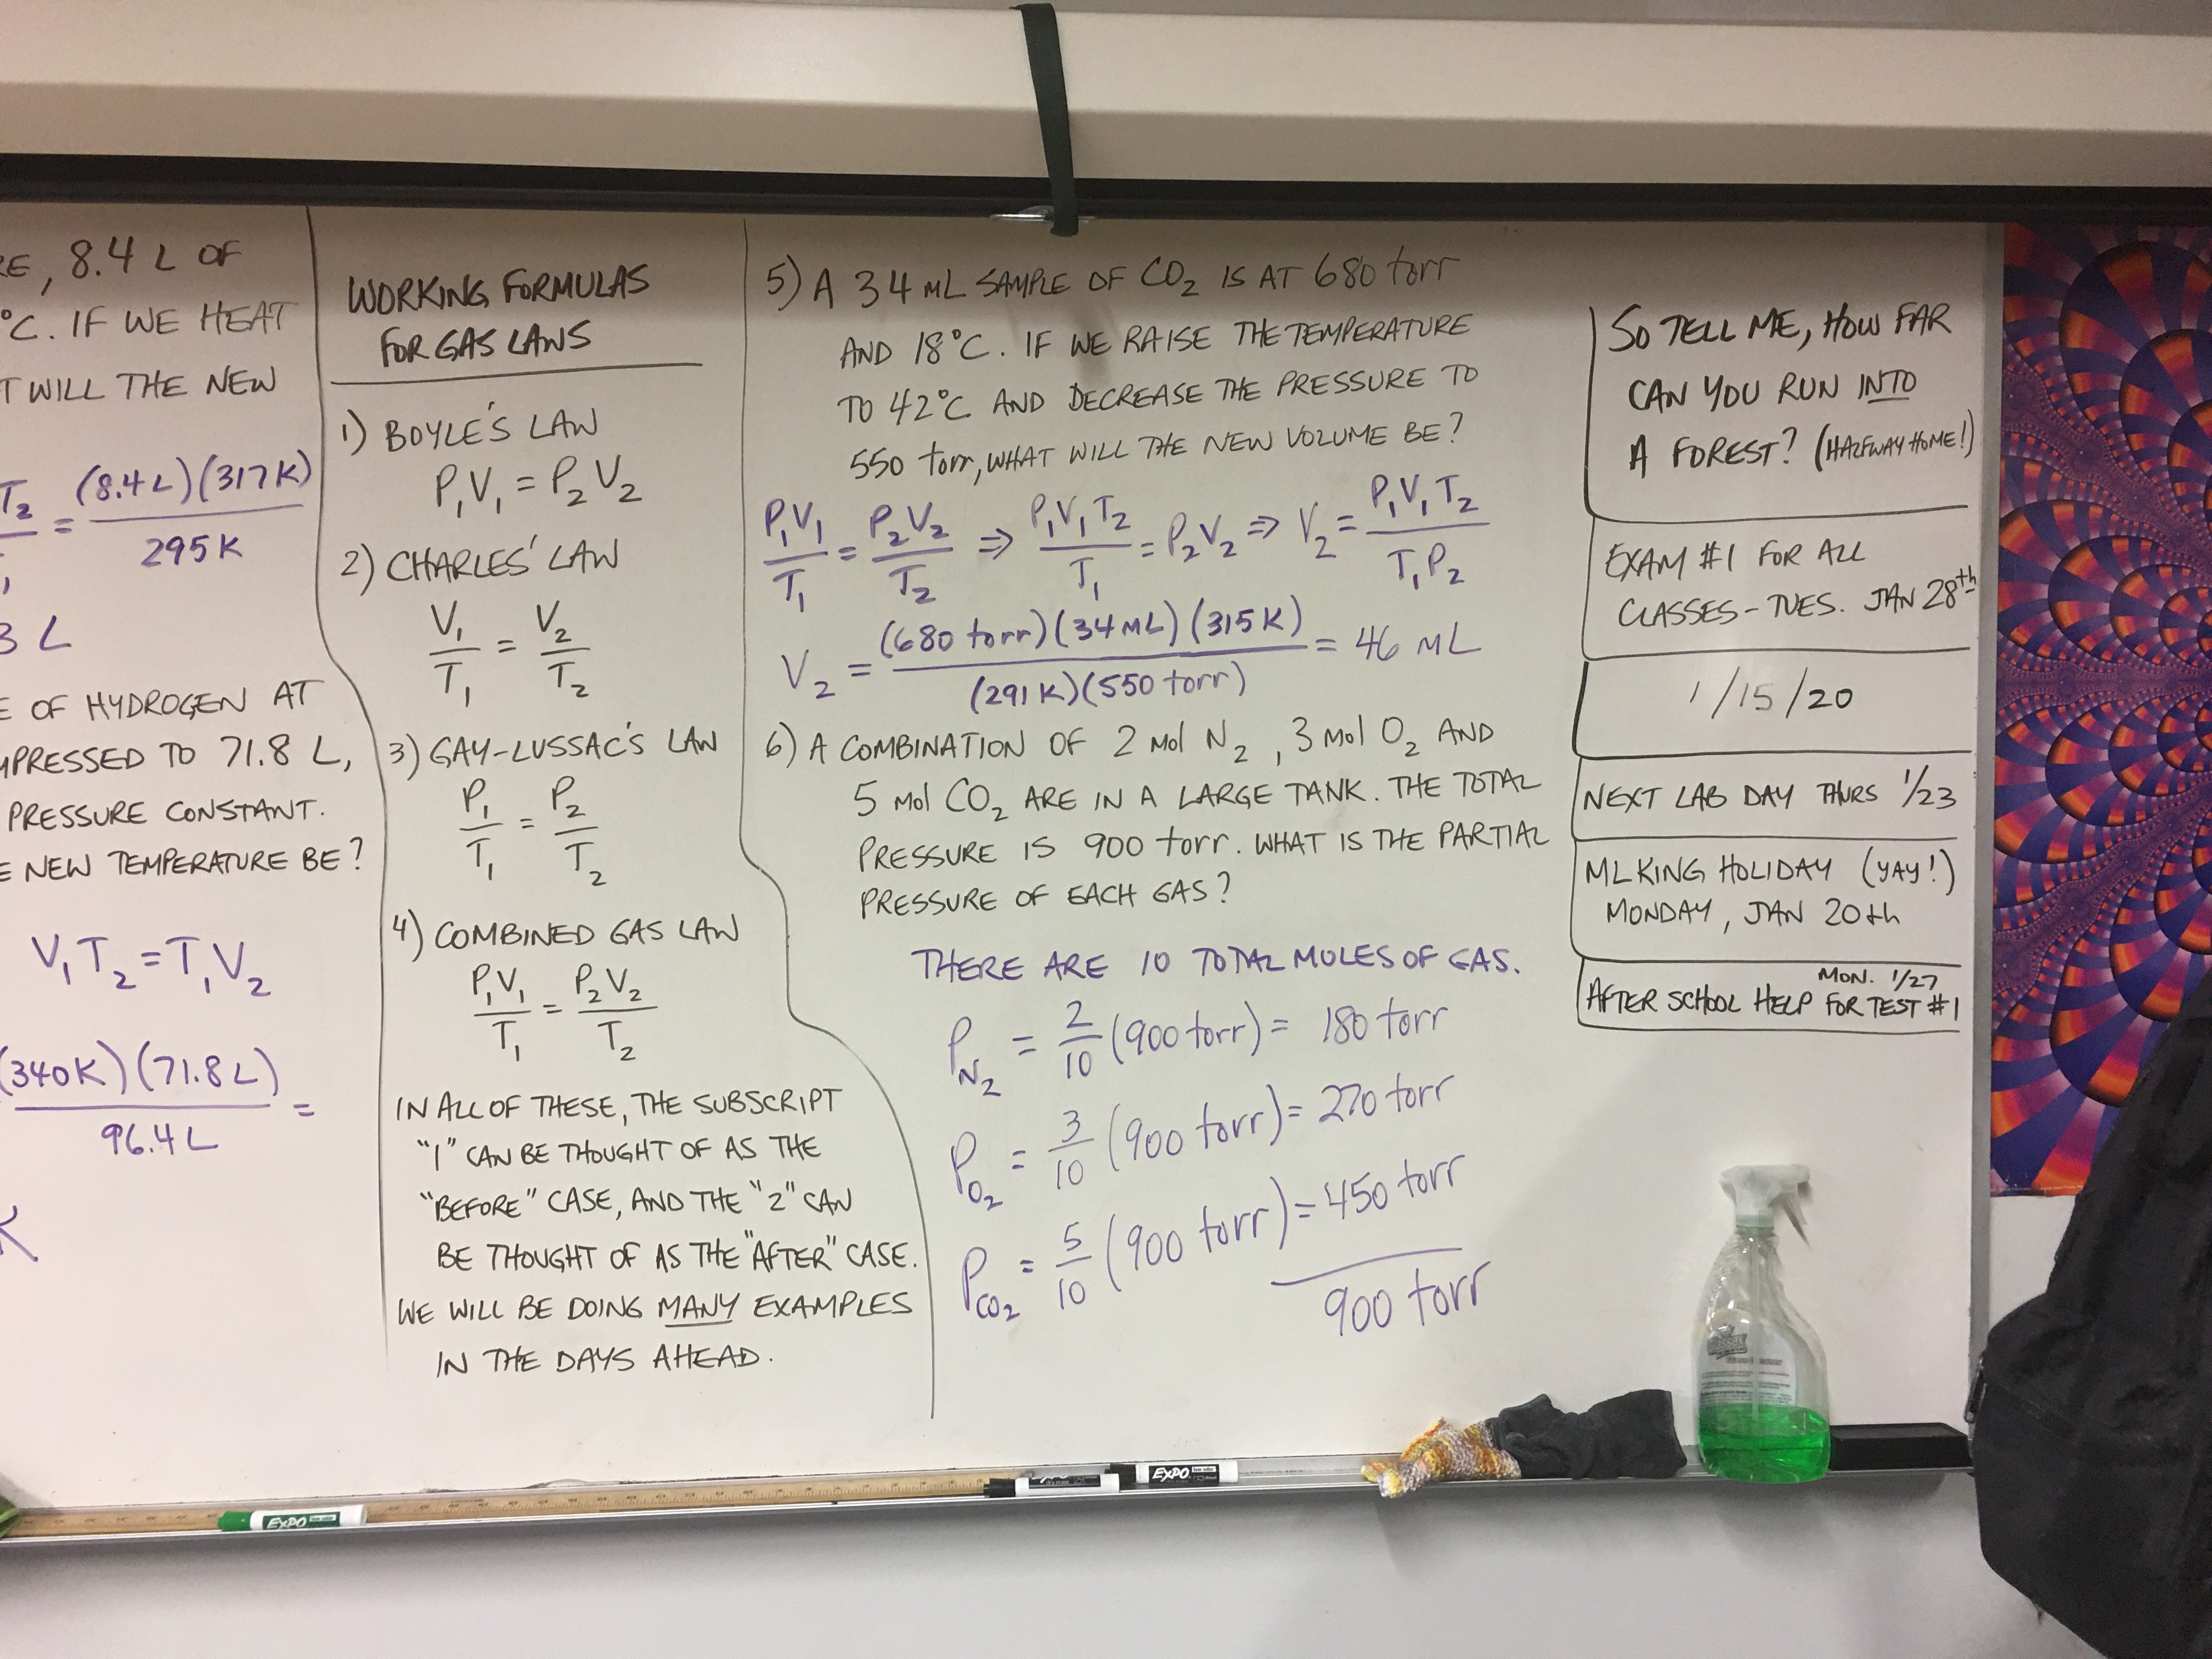 RE, 8.4 L OF
°C. IF WE HEAT
T WILL THE NEW
T₂ = (8.4 L)(317 K)
295 K
3 L
E OF HYDROGEN AT
MPRESSED TO 71.8 L,
PRESSURE CONSTANT.
E NEW TEMPERATURE BE?
V₁T₂ = T₁V₂
(340K)(71.8 L) =
96.4 L
K
WORKING FORMULAS
FOR GAS LAWS
1) BOYLE'S LAW
P₁V₁ = P₂V₂
2) CHARLES' LAW
V₁/T₁ = V₂/T₂
3) GAY-LUSSAC'S LAW
P₁/T₁ = P₂/T₂
4) COMBINED GAS LAW
P₁V₁/T₁ = P₂V₂/T₂
IN ALL OF THESE, THE SUBSCRIPT
"1" CAN BE THOUGHT OF AS THE
"BEFORE" CASE, AND THE "2" CAN
BE THOUGHT OF AS THE "AFTER" CASE.
WE WILL BE DOING MANY EXAMPLES
IN THE DAYS AHEAD.
5) A 34 mL SAMPLE OF CO₂ IS AT 680 torr
AND 18°C. IF WE RAISE THE TEMPERATURE
TO 42°C AND DECREASE THE PRESSURE TO
550 torr, WHAT WILL THE NEW VOLUME BE?
P₁V₁/T₁ = P₂V₂/T₂ ⇒ P₁V₁T₂/T₁ = P₂V₂ ⇒ V₂ = P₁V₁T₂/T₁P₂
V₂ = (680 torr)(34 mL)(315 K)/(291 K)(550 torr) = 46 mL
6) A COMBINATION OF 2 mol N₂, 3 mol O₂ AND
5 mol CO₂ ARE IN A LARGE TANK. THE TOTAL
PRESSURE IS 900 torr. WHAT IS THE PARTIAL
PRESSURE OF EACH GAS?
THERE ARE 10 TOTAL MOLES OF GAS.
P N₂ = 2/10 (900 torr) = 180 torr
P O₂ = 3/10 (900 torr) = 270 torr
P CO₂ = 5/10 (900 torr) = 450 torr
900 torr
SO TELL ME, HOW FAR
CAN YOU RUN INTO
A FOREST? (HALFWAY HOME!)
EXAM #1 FOR ALL
CLASSES - TUES. JAN 28th
1/15/20
NEXT LAB DAY THURS 1/23
MLKING HOLIDAY (YAY!)
MONDAY, JAN 20th
MON. 1/27
AFTER SCHOOL HELP FOR TEST #1
EXPO
EXPO